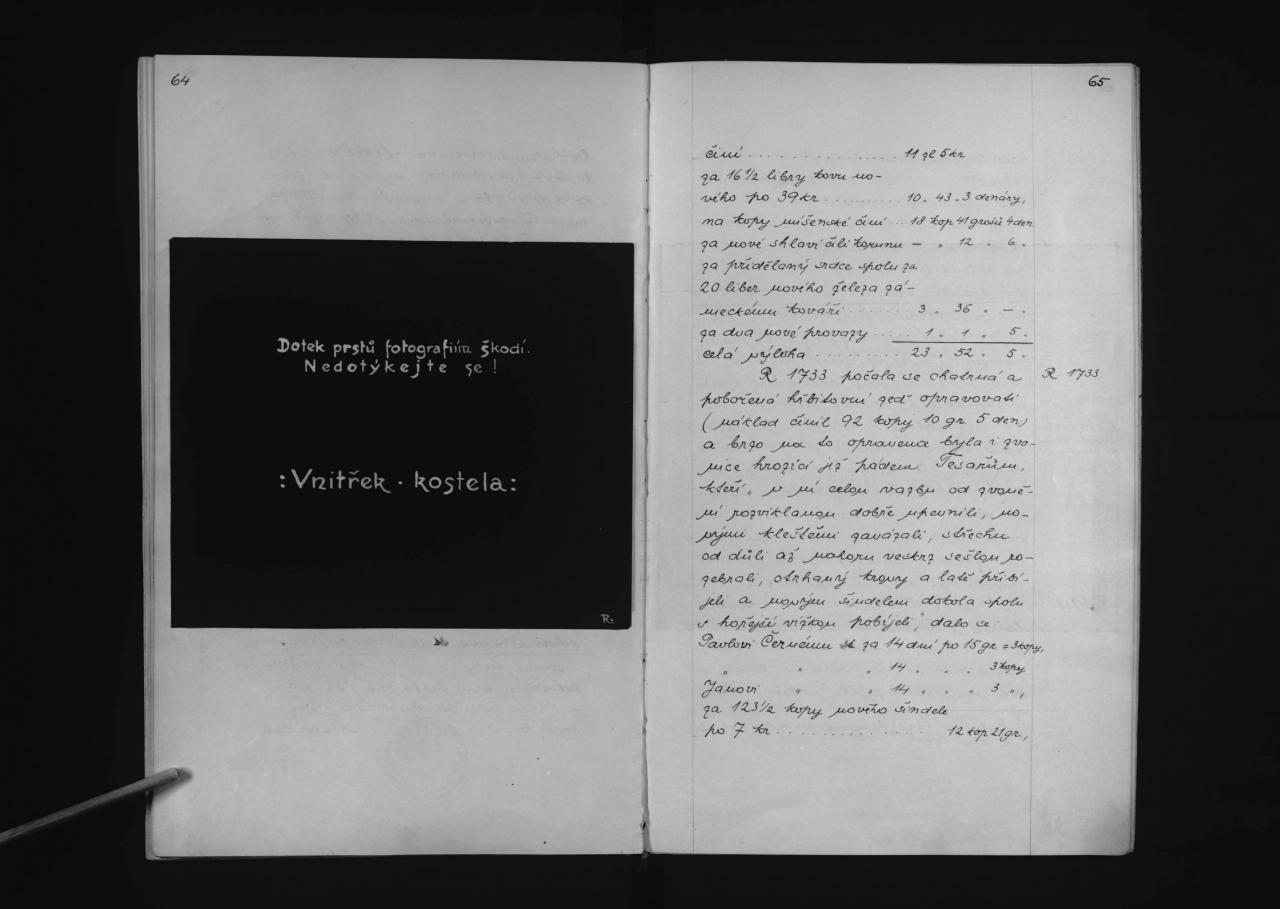 64
Dotek prstů fotografiím škodí.
Nedotýkejte se!
:Vnitřek · kostela:
R.
65
činí . . . . . . . . . . . . . . . 11 zl 5 kr
za 16 1/2 libry kovu no-
vého po 39 kr . . . . . . . . . . 10 „ 43 „ 3 denáry,
na kopy míšenské činí . . 18 kop 41 grošů 4 den
za nové shlaví čili korunu — „ 12 „ 6 „
za přidělaný srdce spolu za
20 liber nového železa zá-
meckému kováři . . . . . . . 3 „ 36 „ — „
za dva nové provazy . . . . . 1 „ 1 „ 5 „
celá výloha . . . . . . . . . . 23 „ 52 „ 5 „
R. 1733 počala se chatrná a
R. 1733
pobořená hřbitovní zeď opravovati
(náklad činil 92 kopy 10 gr 5 den)
a brzo na to opravena byla i zvo-
nice hrozící již pádem. Tesařům,
kteří „v ní celou vazbu od zvoně-
ní rozviklanou dobře upevnili, no-
vými kleštěmi zavázali, střechu
od důli až nahoru veskrz sešlou ro-
zebrali, otrhaný krovy a latě přibí-
jeli a novým šindelem dokola spolu
s hořejší vížkou pobíjeli," dalo se:
Pavlovi Černému za 14 dní po 15 gr = 3 kopy,
„ „ „ 14 „ „ „ 3 kopy
Janovi „ „ 14 „ „ „ 3 „,
za 123 1/2 kopy nového šindele
po 7 kr . . . . . . . . . . . . . . 12 kop 21 gr,